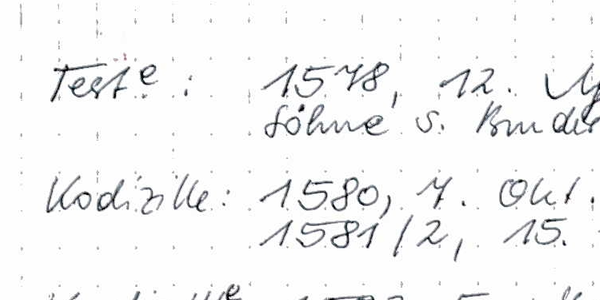 Test^e: 1578, 12.
Söhne s. Bruder
Kodizille: 1580, 7. Okt.
1581/2, 15.